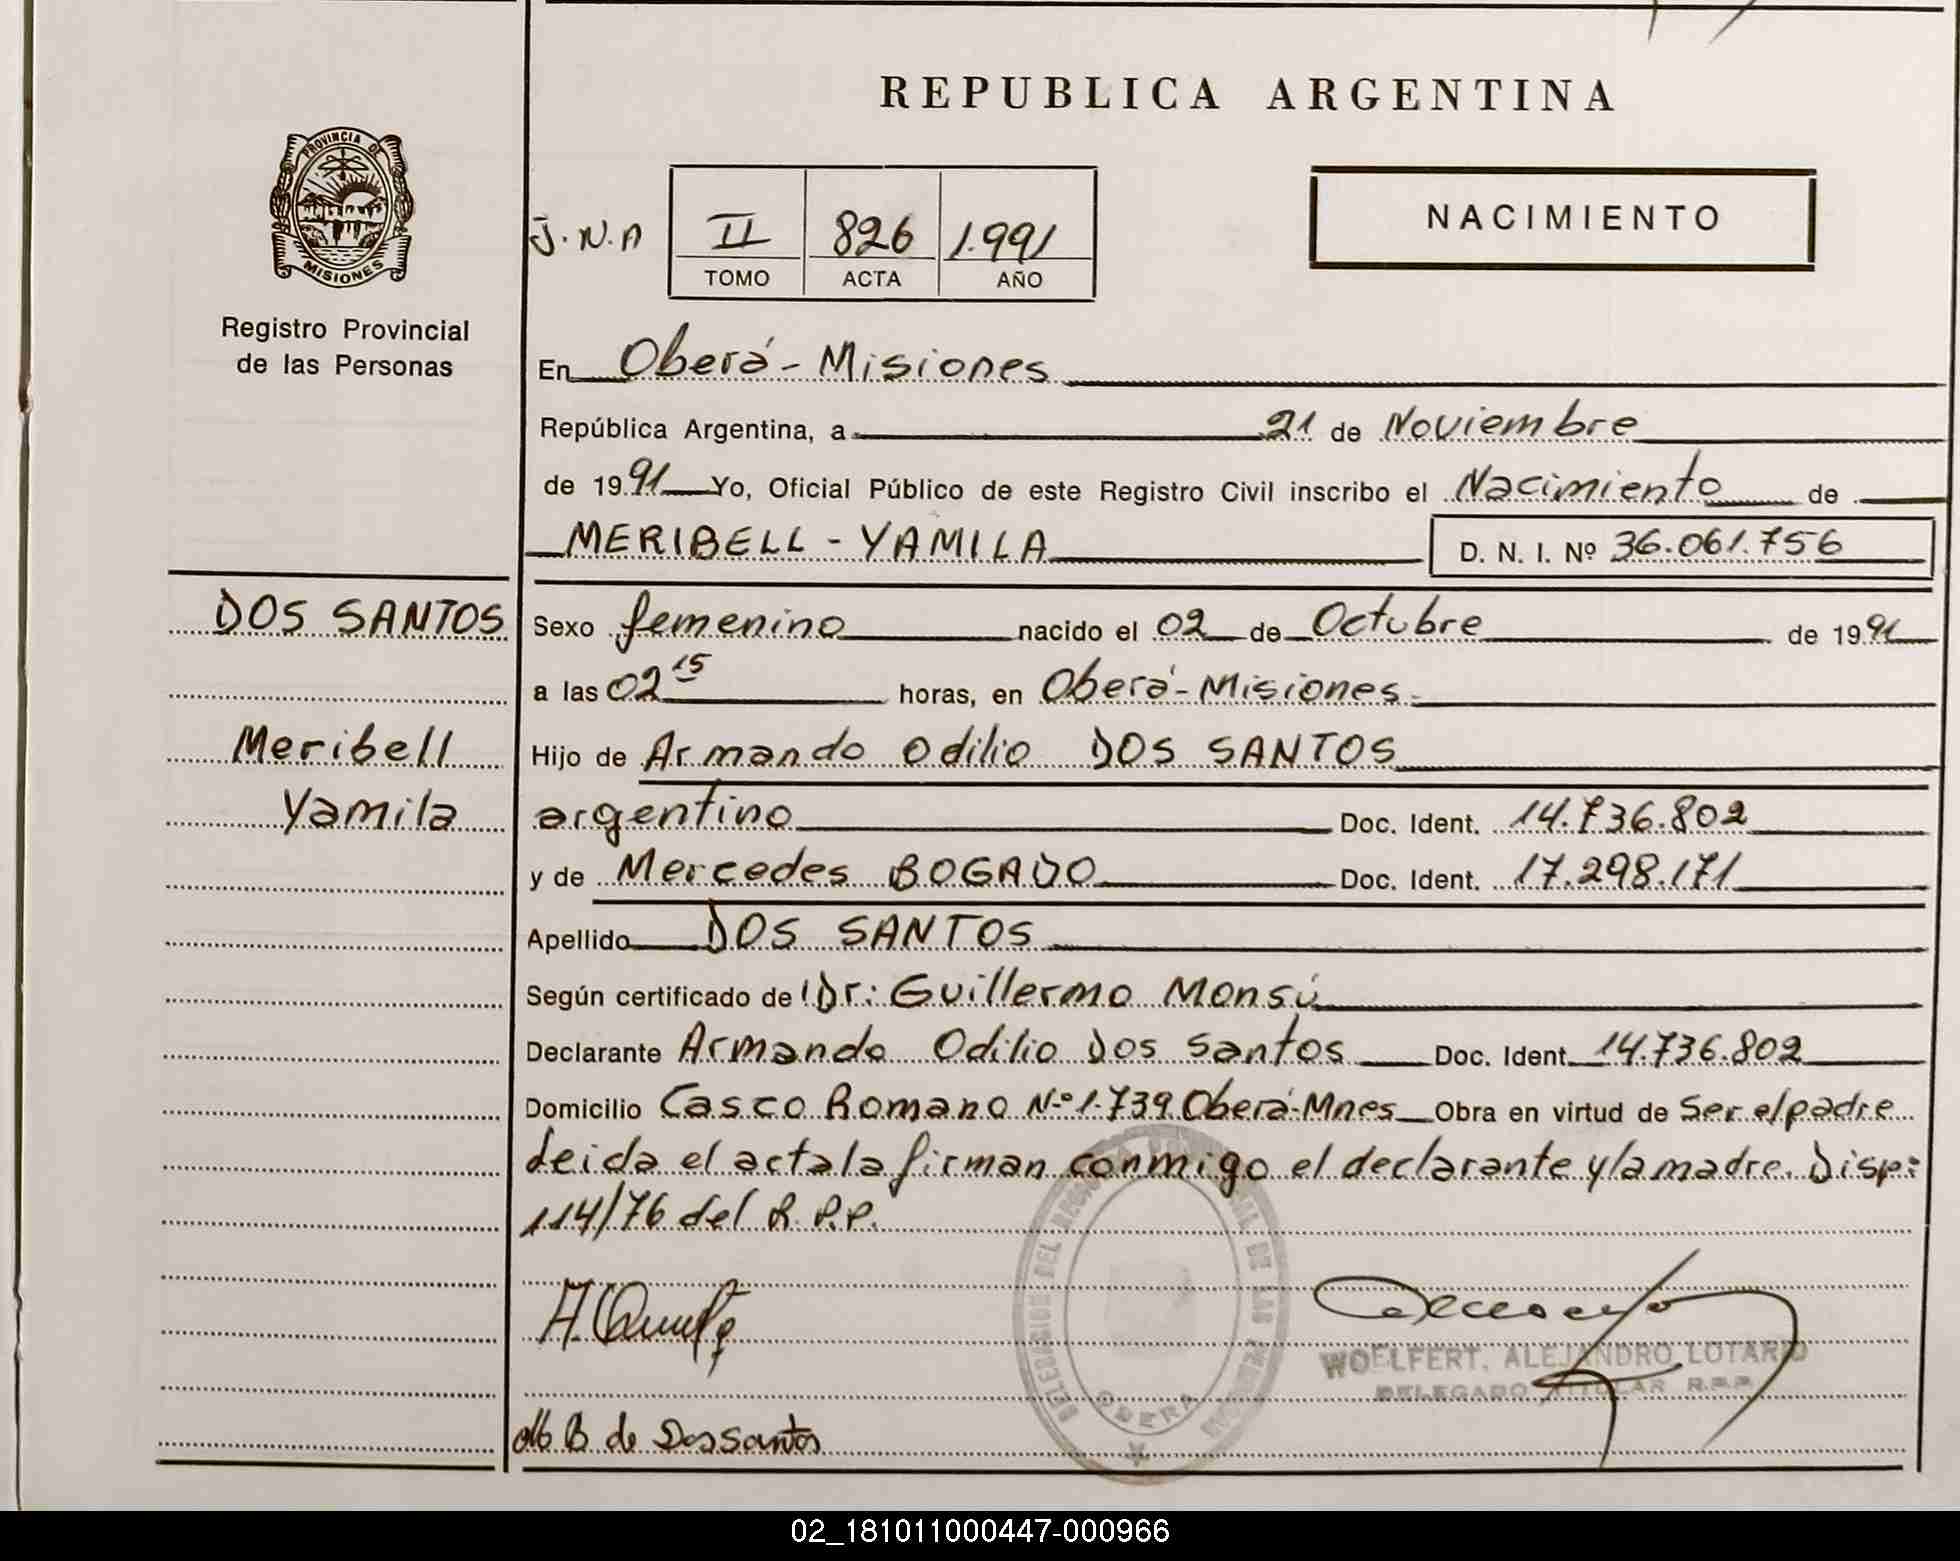 REPUBLICA ARGENTINA
PROVINCIA DE
MISIONES
Registro Provincial
de las Personas
J.N.A
II 826 1.991
TOMO ACTA AÑO
NACIMIENTO
En Oberá - Misiones
República Argentina, a 21 de Noviembre
de 1991 Yo, Oficial Público de este Registro Civil inscribo el Nacimiento de
MERIBELL - YAMILA D. N. I. Nº 36.061.756
DOS SANTOS
Meribell
Yamila
Sexo femenino nacido el 02 de Octubre de 1991
a las 02 15 horas, en Oberá - Misiones.
Hijo de Armando Odilio DOS SANTOS
argentino Doc. Ident. 14.736.802
y de Mercedes BOGADO Doc. Ident. 17.298.171
Apellido DOS SANTOS
Según certificado de Dr: Guillermo Monsú
Declarante Armando Odilio Dos Santos Doc. Ident. 14.736.802
Domicilio Casco Romano Nº 1.739 Oberá-Mnes Obra en virtud de Ser el padre
Leida el acta la firman conmigo el declarante y la madre. Disp:
114/76 del R.P.P.
DELEGACION DEL REGISTRO PROVINCIAL DE LAS PERSONAS
OBERA
WOELFERT, ALEJANDRO LOTARIO
DELEGADO TITULAR R.P.P.
M B de Dos Santos
02_181011000447-000966